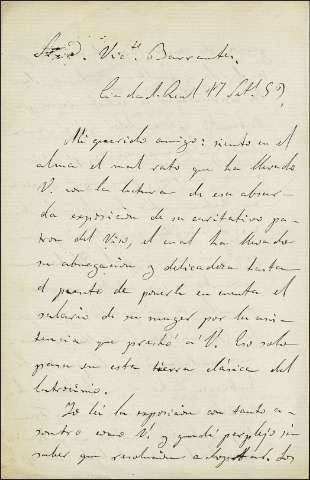 Sr. D. Vic.te Barrantes.
Ciudad-Real 17 Set.e 59.
Mi querido amigo: siento en el
alma el mal rato que ha llevado
V. con la lectura de esa absur-
da exposicion de su caritativo pa-
tron del Viso, el cual ha llevado
su abnegacion y delicadeza hasta
el punto de ponerle en cuenta el
salario de su muger por la asis-
tencia que prestó á V. Eso solo
pasa en esta tierra clásica del
latrocinio.
Yo leí la exposicion con tanto a-
sombro como V. y quedé perplejo sin
saber que resolucion adoptar. Los